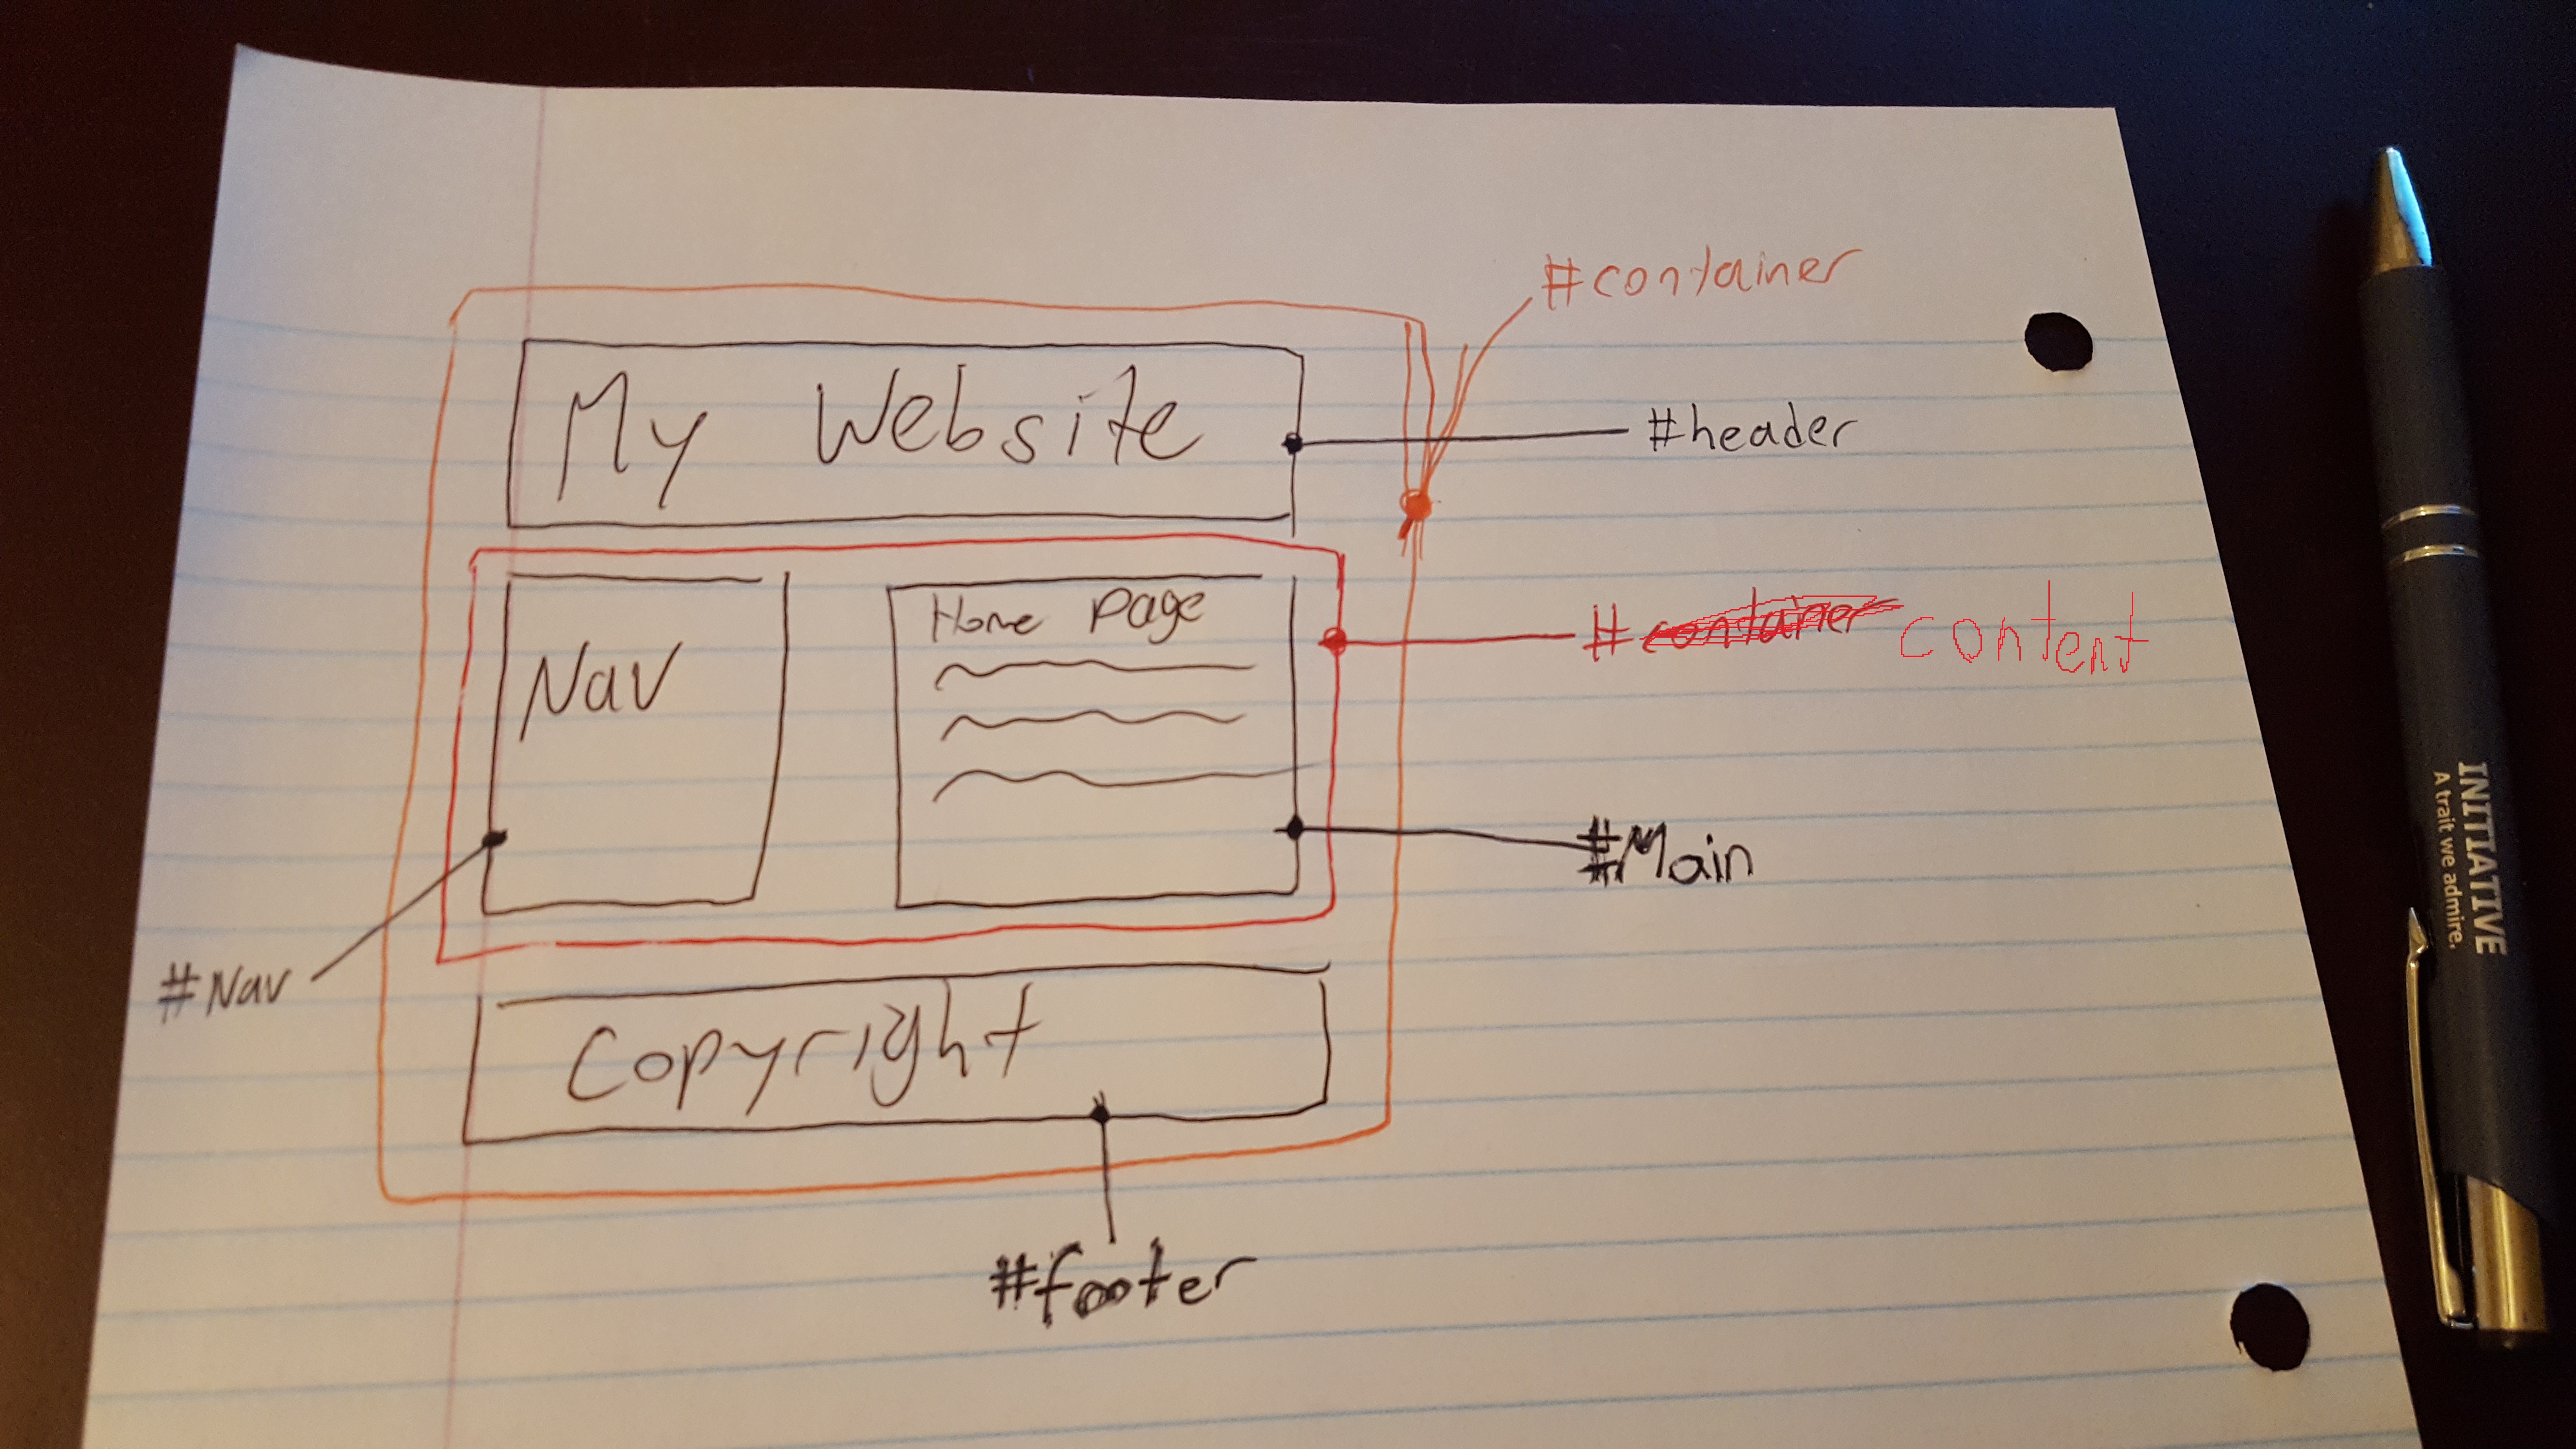 #container
My Website
#header
Home Page
#container content
Nav
#Main
#Nav
Copyright
#footer
INITIATIVE
A trait we admire.